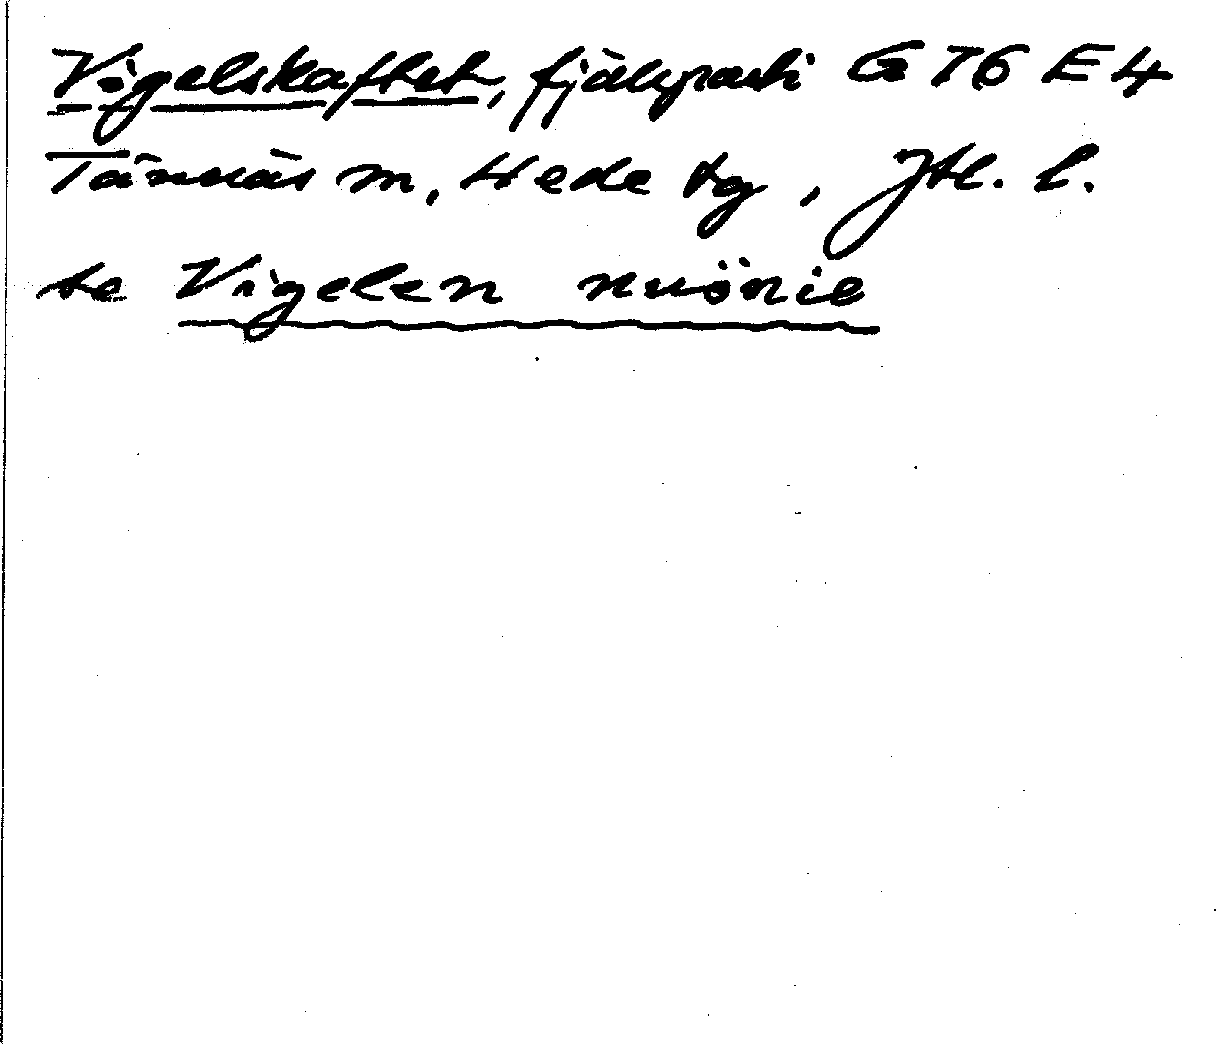 Vigelskaftet, fjällparti G 76 E 4
Tännäs m, Hede tg, Jtl. l.
se Vigelen nuönie